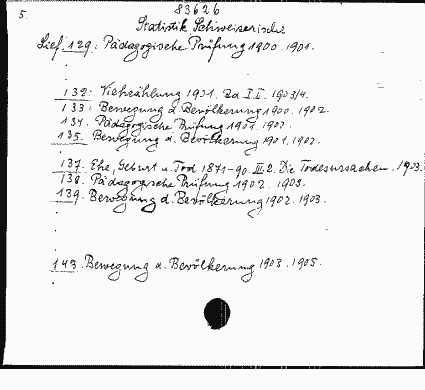 83626
5.
Statistik Schweizerische
Lief. 129: Pädagogische Prüfung 1900. 1901.
132: Viehzählung 1901. Bd I. II. 1903/4.
133: Bewegung d. Bevölkerung 1900. 1902.
134. Pädagogische Prüfung 1901. 1902.
135. Bewegung d. Bevölkerung 1901. 1902.
137. Ehe, Geburt u. Tod 1871-90. III. 2. Die Todesursachen. 1903.
138. Pädagogische Prüfung 1902. 1903.
139. Bewegung d. Bevölkerung 1902. 1903.
143. Bewegung d. Bevölkerung 1903. 1905.